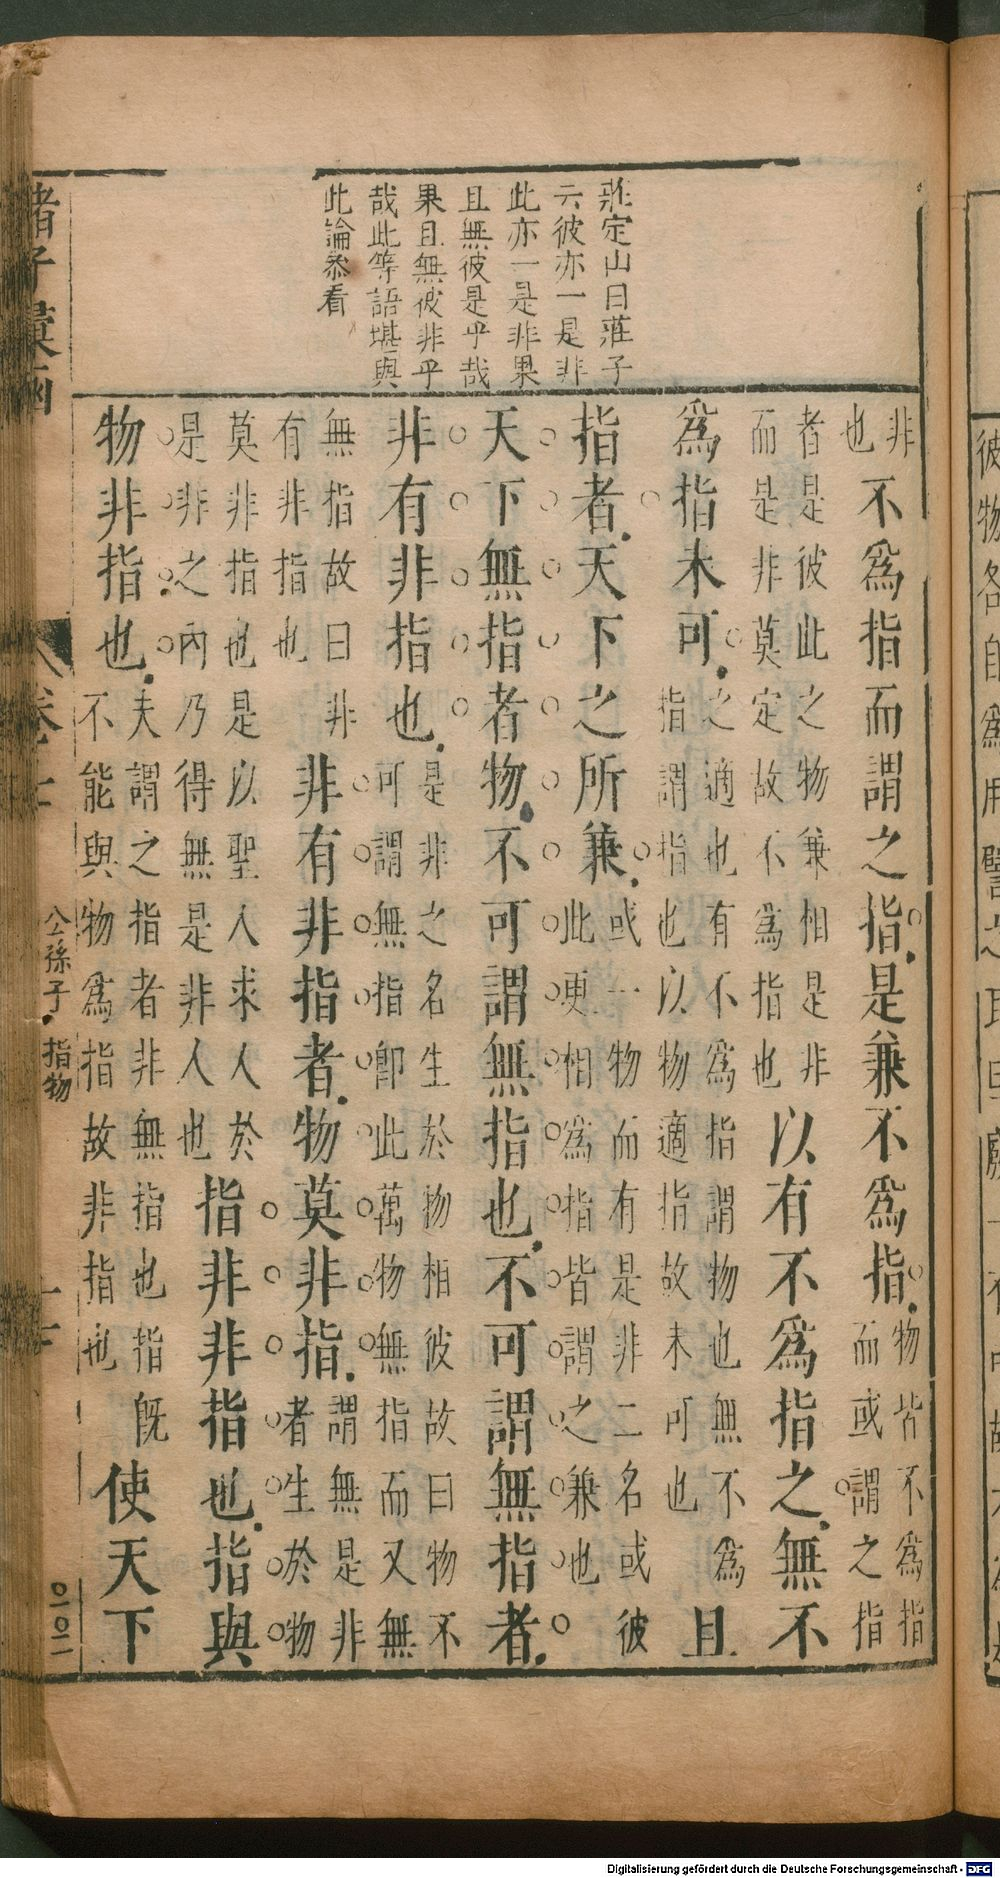 莊定山曰莊子
云彼亦一是非
此亦一是非果
且無彼是乎哉
果且無彼非乎
哉此等語堪與
此論叅看
非也不爲指而謂之指是兼不爲指物皆不爲指而或謂之指
者是彼此之物兼相是非而是非莫定故不爲指也以有不爲指之無不
爲指未可之適也有不爲指謂物也無不爲指謂指也以物適指故未可也且
指者天下之所兼或一物而有是非二名或彼此更相爲指皆謂之兼也
天下無指者物不可謂無指也不可謂無指者
非有非指也是非之名生於物相彼故曰物不可謂無指卽此萬物無指而又無
無指故曰非有非指也非有非指者物莫非指謂無是非者生於物
莫非指也是以聖人求人於是非之內乃得無是非人也指非非指也指與
物非指也夫謂之指者非無指也指旣不能與物爲指故非指也使天下
諸子彙函
卷七
公孫子 指物
Digitalisierung gefördert durch die Deutsche Forschungsgemeinschaft - DFG